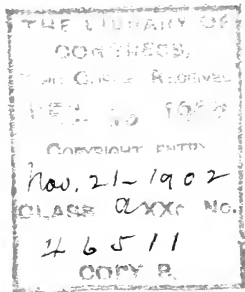 THE LIBRARY OF
CONGRESS,
TWO COPIES RECEIVED
190
COPYRIGHT ENTRY
Nov. 21-1902
CLASS a XXc No.
46511
COPY B.